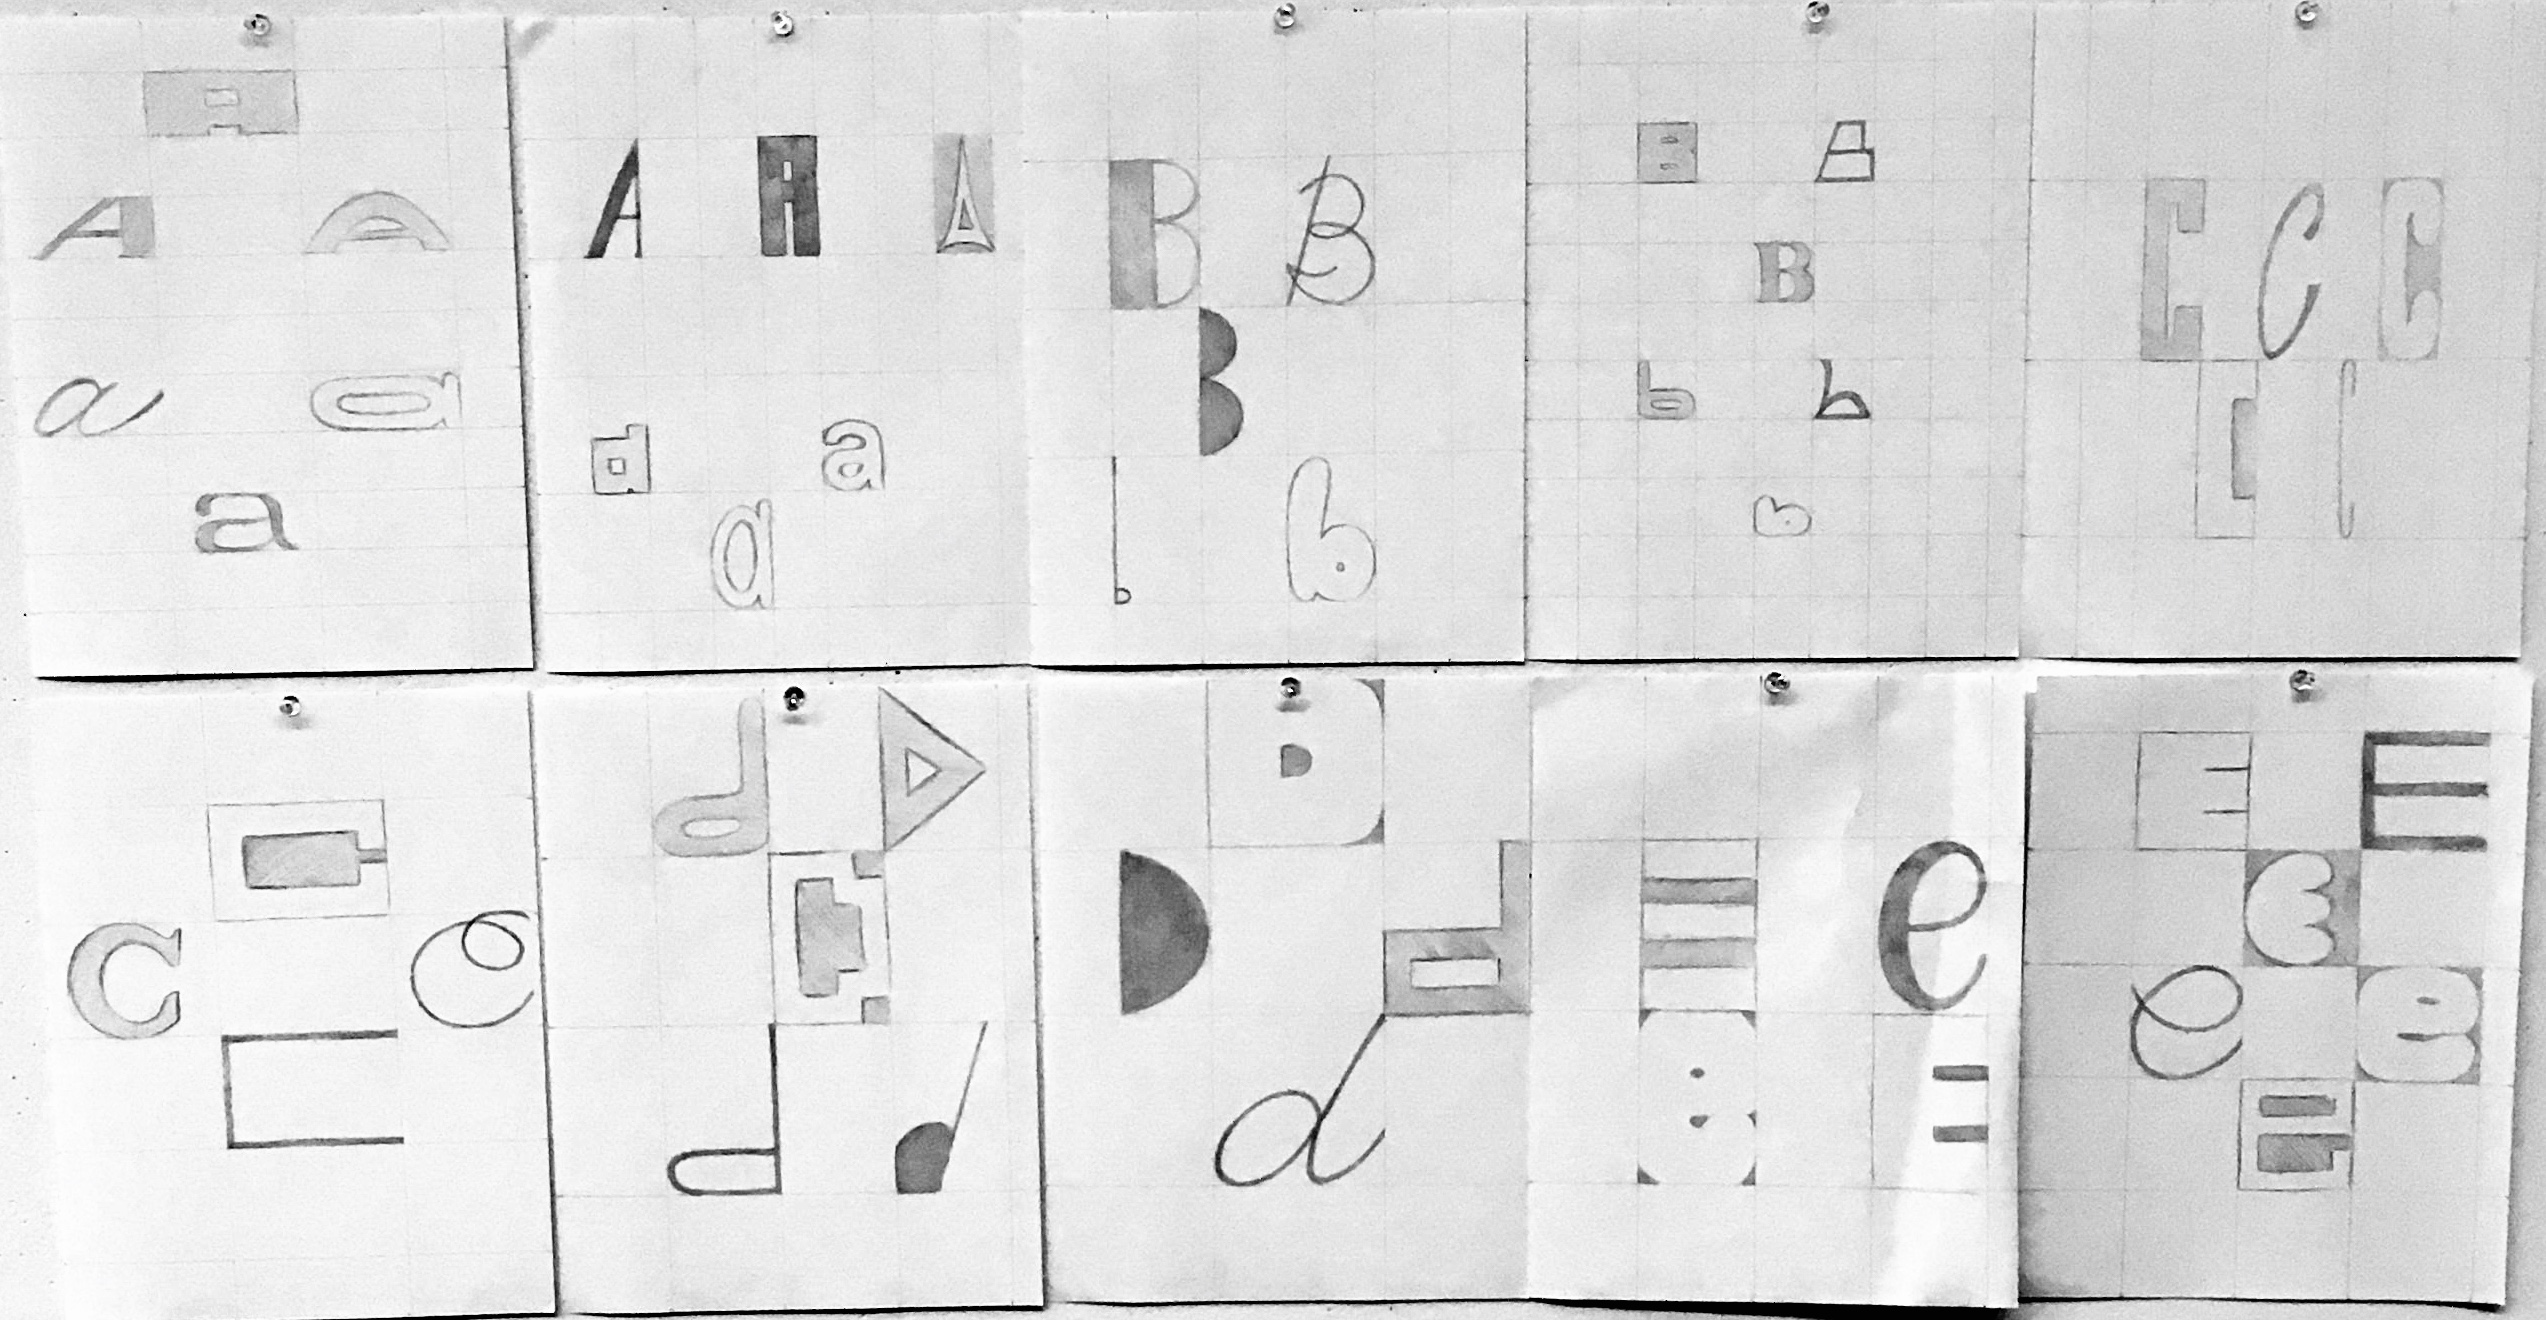 A
A A
a a
a
A A A
a a
a
B B
B
b b
B B
B
b b
b
C C C
C C
C
C C
C
d D
D
d d
D
D d
d
E e
e E
E E
E
e e
e